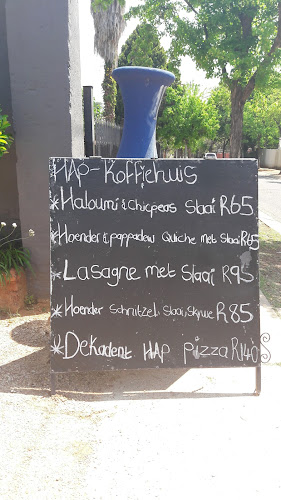 HAP-Koffiehuis
*Haloumi & Chicpeas Slaai R65
*Hoender & peppadew Quiche met Slaai R65
*Lasagne met Slaai R95
*Hoender Schnitzel, Slaai, Skyfie R85
*Dekadent HAP pizza R140